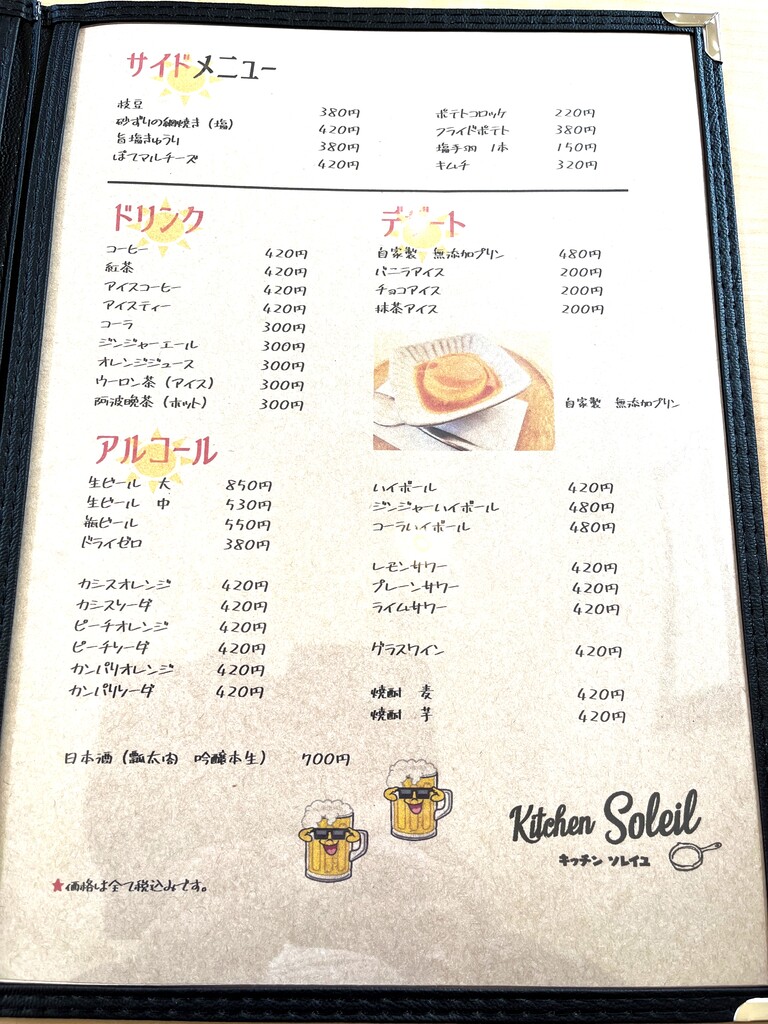 サイドメニュー
枝豆 380円
砂ずりの網焼き（塩） 420円
旨塩きゅうり 380円
ぽてマルチーズ 420円
ポテトコロッケ 220円
フライドポテト 380円
塩手羽 1本 150円
キムチ 320円
ドリンク
コーヒー 420円
紅茶 420円
アイスコーヒー 420円
アイスティー 420円
コーラ 300円
ジンジャーエール 300円
オレンジジュース 300円
ウーロン茶（アイス） 300円
阿波晩茶（ホット） 300円
デザート
自家製 無添加プリン 480円
バニラアイス 200円
チョコアイス 200円
抹茶アイス 200円
自家製 無添加プリン
アルコール
生ビール 大 850円
生ビール 中 530円
瓶ビール 550円
ドライゼロ 380円
カシスオレンジ 420円
カシスソーダ 420円
ピーチオレンジ 420円
ピーチソーダ 420円
カンパリオレンジ 420円
カンパリソーダ 420円
日本酒（瓢太閤 吟醸本生） 700円
ハイボール 420円
ジンジャーハイボール 480円
コーラハイボール 480円
レモンサワー 420円
プレーンサワー 420円
ライムサワー 420円
グラスワイン 420円
焼酎 麦 420円
焼酎 芋 420円
★価格は全て税込みです。
Kitchen Soleil
キッチン ソレイユ